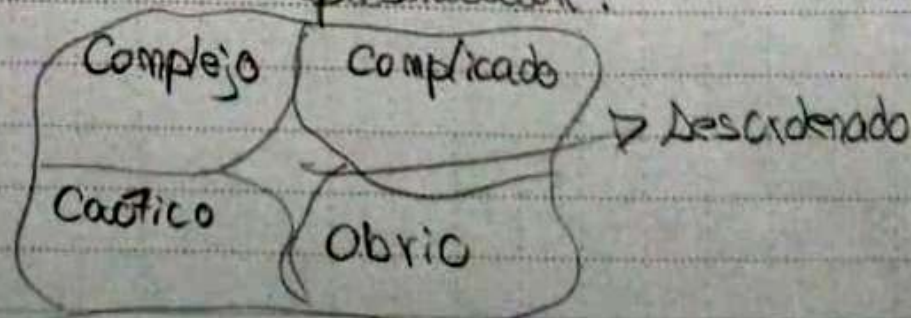 Complejo
Complicado
Desordenado
Caótico
Obvio